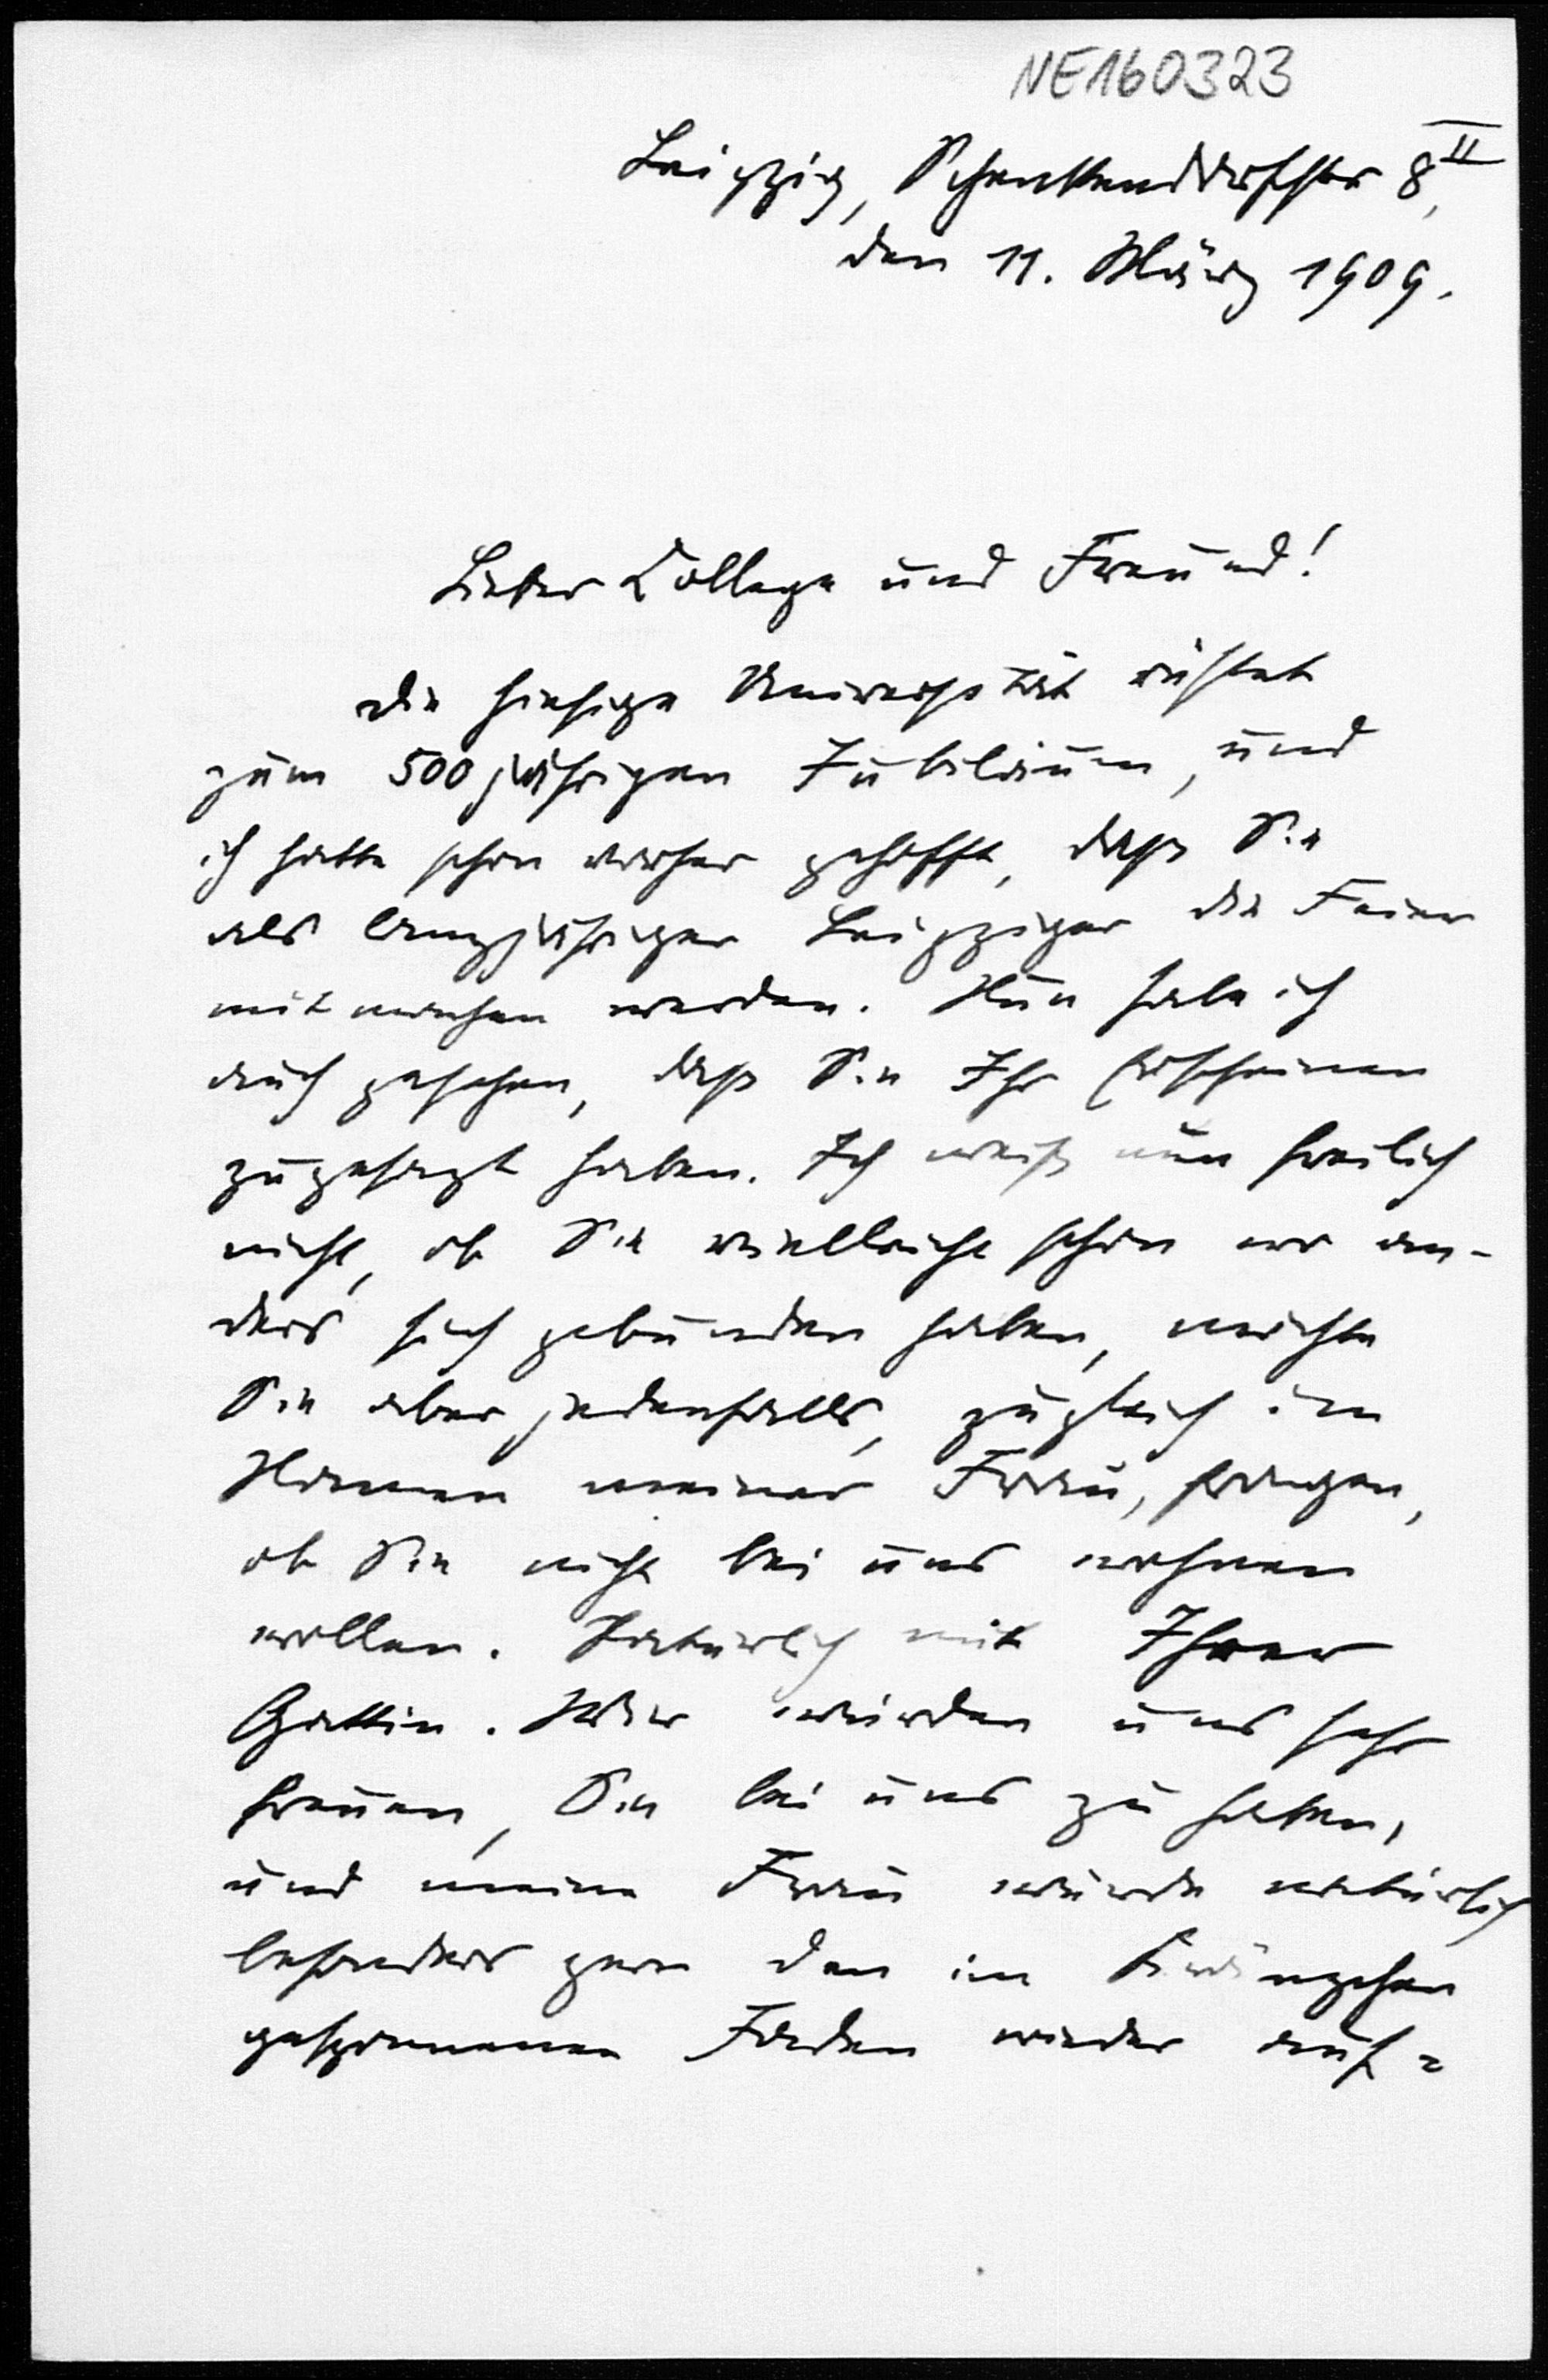 NE160323
Leipzig, Schenkendorfstr 8 II,
den 11. März 1909.
Lieber College und Freund!
die hiesige Universität rüstet
zum 500 jährigen Jubiläum, und
ich hatte schon vorher gehofft, daß Sie
als langjähriger Leipziger die Feier
mit machen werden. Nun habe ich
auch gesehen, daß Sie Ihr Erscheinen
zugesagt haben. Ich weiß nun freilich
nicht, ob Sie vielleicht schon wo an-
ders sich gebunden haben, möchte
Sie aber jedenfalls, zugleich im
Namen meiner Frau, fragen,
ob Sie nicht bei uns wohnen
wollen. Natürlich mit Ihrer
Gattin. Wir würden uns sehr
freuen, Sie bei uns zu haben,
und meine Frau würde natürlich
besonders gern den im Kränzchen
gesponnenen Faden wieder auf-